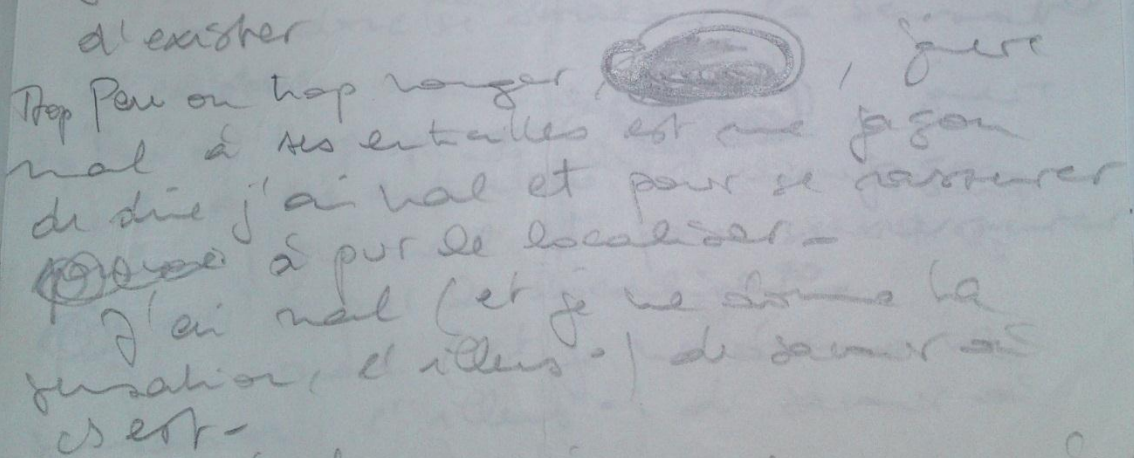 d'exister
Trop Peu ou trop manger, , faire
mal à ses entrailles est une façon
de dire j'ai mal et pour se rassurer
à pur le localiser -
J'ai mal (et je me donne la
sensation, l'illus°) de savoir où
cs est -